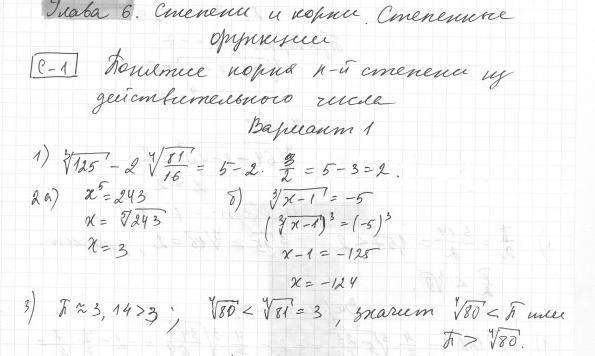 Глава 6. Степени и корни. Степенные
функции
С-1 Понятие корня n-й степени из
действительного числа
Вариант 1
1) ∛125 − 2 ∜(81/16) = 5 − 2 · 3/2 = 5 − 3 = 2.
2а) x⁵ = 243 б) ∛(x−1) = −5
x = ⁵√243 (∛(x−1))³ = (−5)³
x = 3 x − 1 = −125
x = −124
3) П ≈ 3,14 > 3; ∜80 < ∜81 = 3, значит ∜80 < П или
П > ∜80.